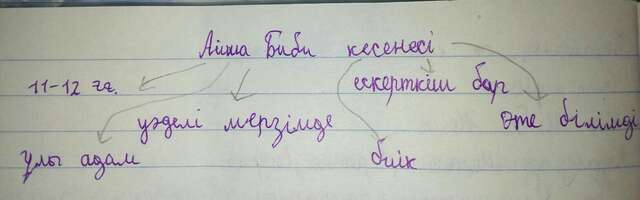 Айша Биби кесенесі
11-12 ғғ. ескерткіш бар
уәделі мерзімде өте білімді
ұлы адам биік